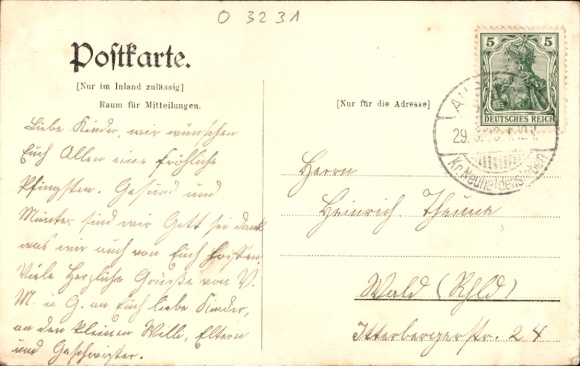 O 3231
Postkarte.
[Nur im Inland zulässig]
Raum für Mitteilungen.
[Nur für die Adresse]
5 5
DEUTSCHES REICH
29.
Kr. Neuhaldensleben
Liebe Kinder, wir wünschen
Euch Allen eine fröhliche
Pfingsten. Gesund und
Munter sind wir Gott sei dank
was wir auch von Euch hoffen.
Viele Herzliche Grüsse von V.
M. u G. an Euch liebe Kinder,
an den kleinen Willi, Eltern
und Geschwister.
Herrn
Heinrich Theune
Wald (Rhld)
Itterbergerstr. 24